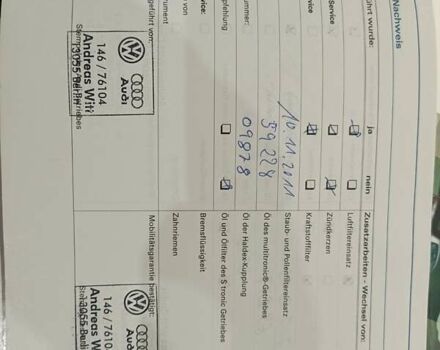 Nachweis
führt wurde:
ja
nein
Zusatzarbeiten - Wechsel von:
Service
Luftfiltereinsatz
Service
Zündkerzen
Kraftstofffilter
10.11.2011
Staub- und Pollenfiltereinsatz
59228
Öl des multitronic®-Getriebes
ummer:
09878
Öl der Haldex-Kupplung
pfehlung
Öl und Ölfilter des S tronic Getriebes
Service:
Bremsflüssigkeit
von
Zahnriemen
strument
geführt von:
Mobilitätsgarantie bestätigt:
Audi
146 / 76104
Andreas Witt
Audi
146 / 76104
Andreas Witt